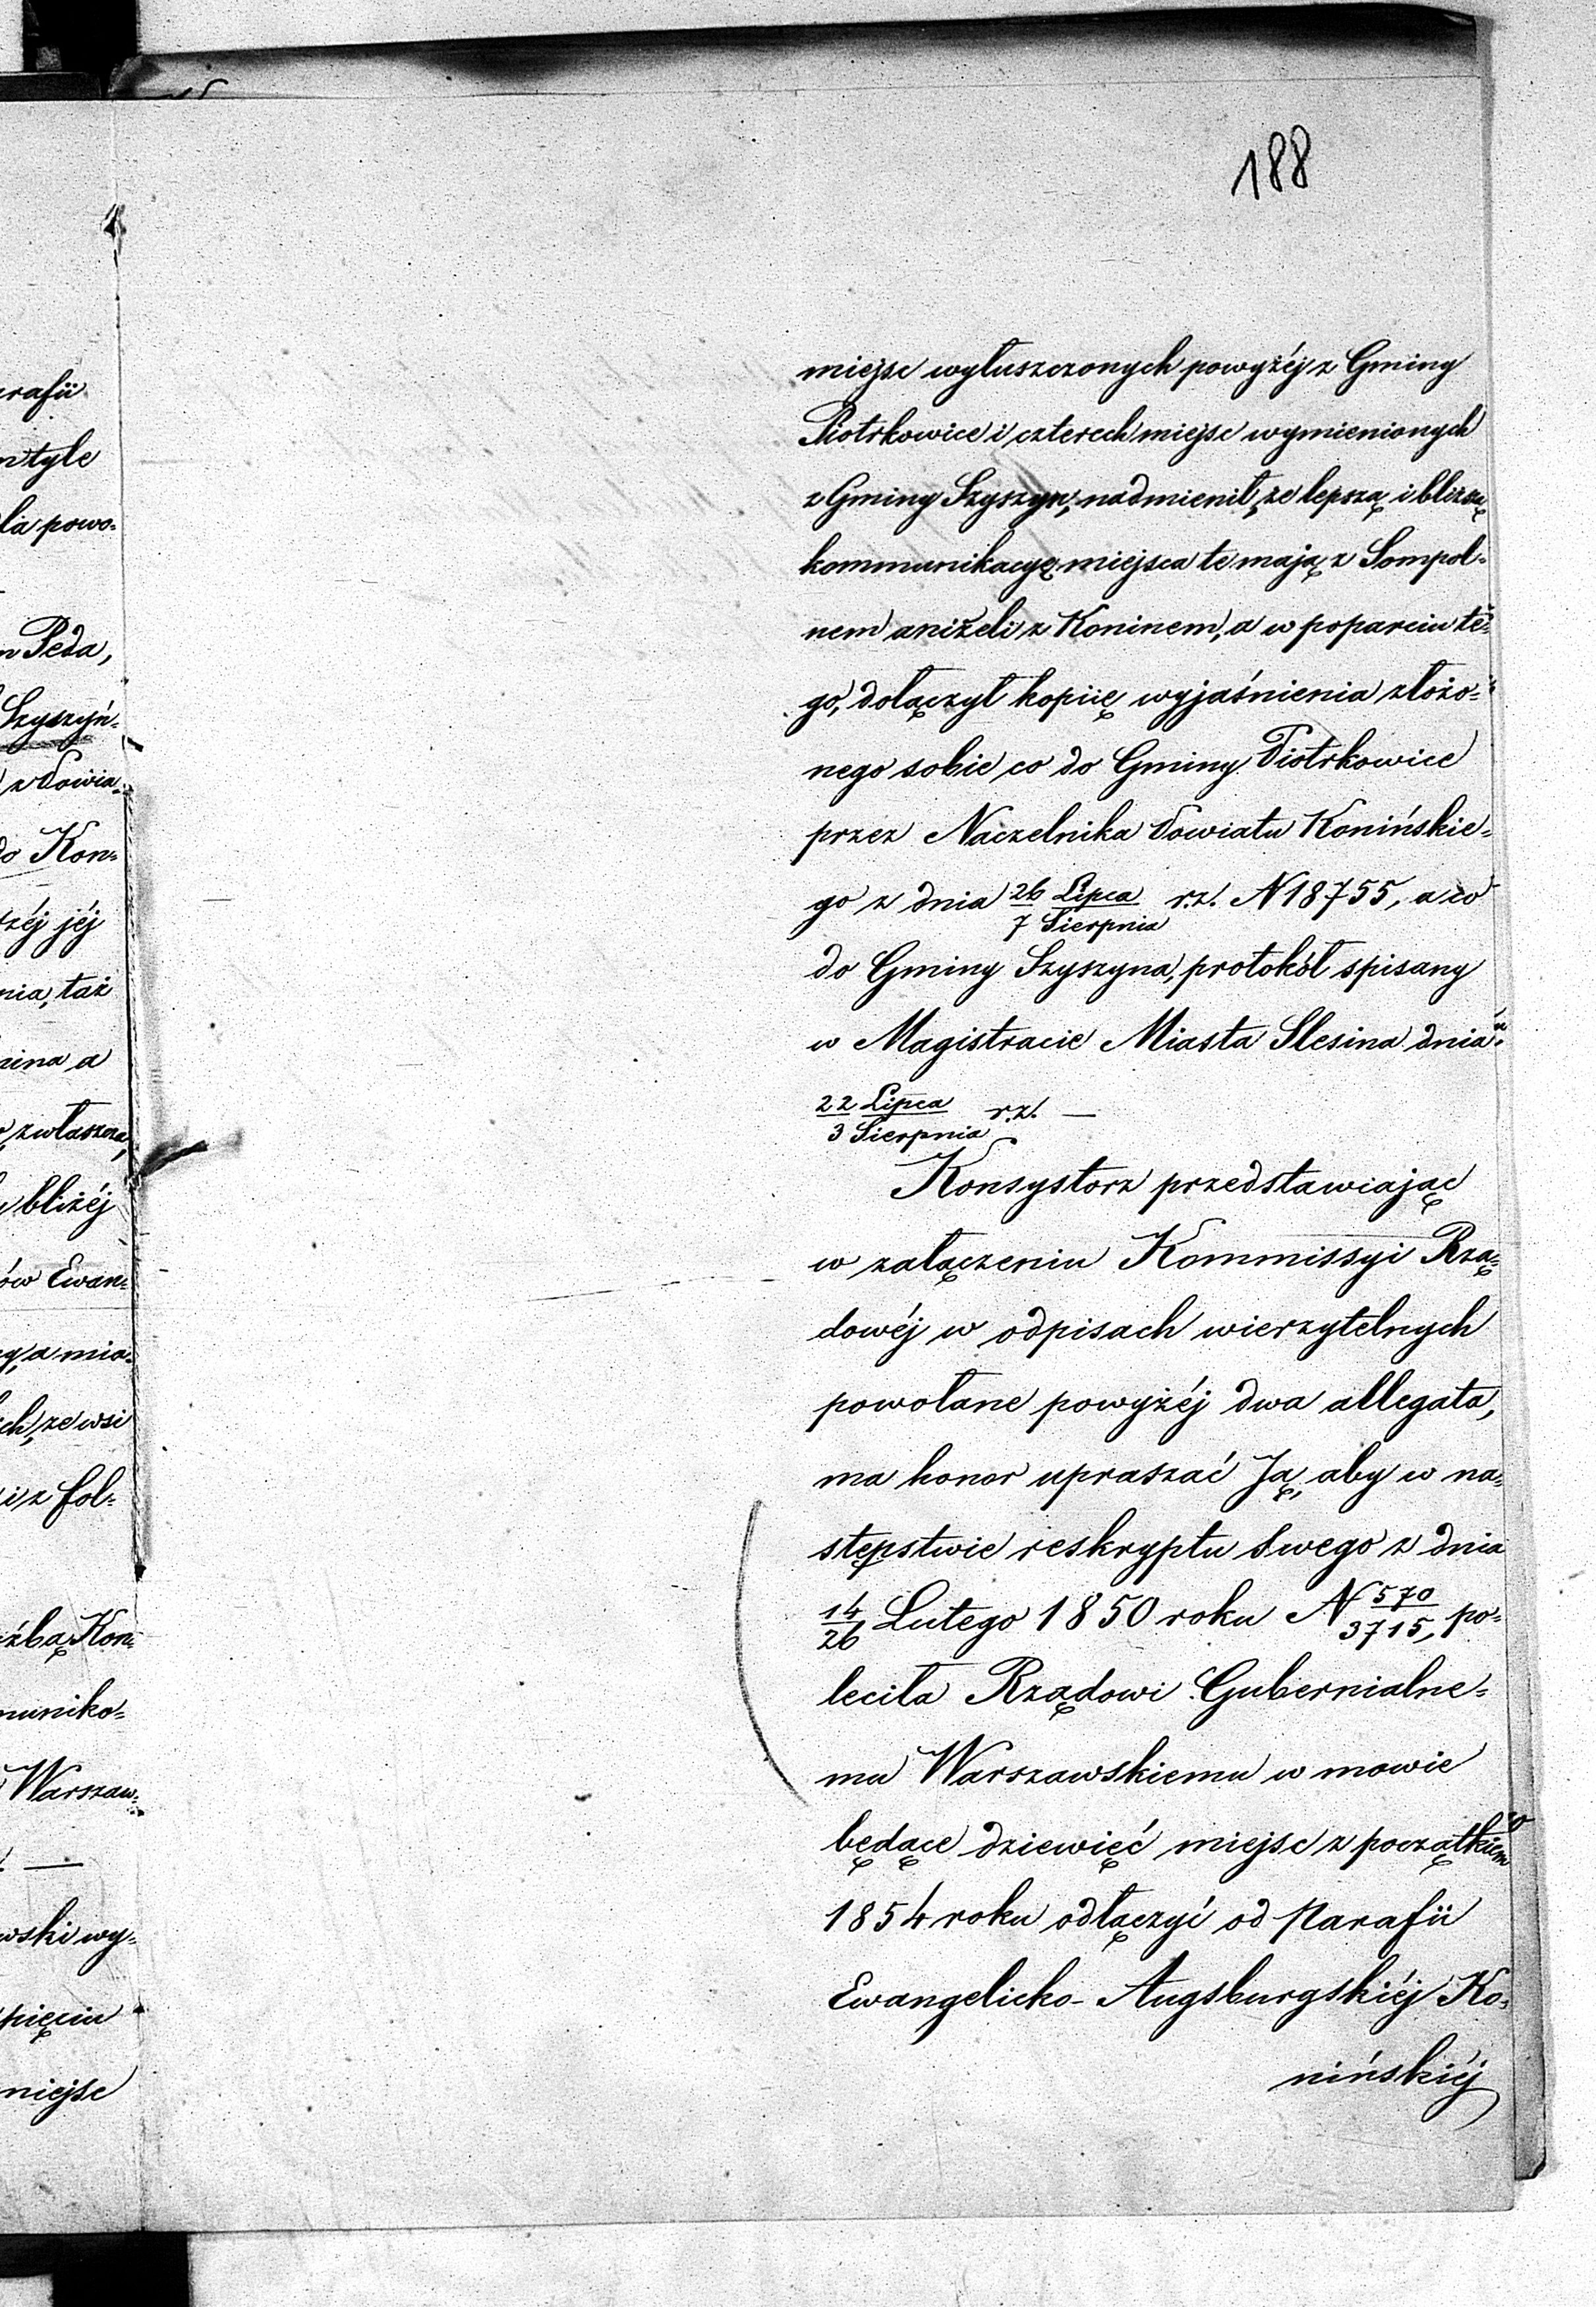 188
miejsc wyłuszczonych powyżéj z Gminy
Piotrkowice i czterech miejsc wymienionych
z Gminy Szyszyn, nadmienił, że lepszą i bliższą
kommunikacyę miejsca te mają z Sompol-
nem aniżeli z Koninem, a w poparciu te-
go, dołączył kopiię wyjaśnienia złożo-
nego sobie co do Gminy Piotrkowice
przez Naczelnika Powiatu Konińskie-
go z dnia 26 Lipca / 7 Sierpnia r.z. N 18755, a co
do Gminy Szyszyna, protokół spisany
w Magistracie Miasta Slesina dnia
22 Lipca / 3 Sierpnia r.z. —
Konsystorz przedstawiając
w załączeniu Kommissyi Rzą-
dowéj w odpisach wierzytelnych
powołane powyżéj dwa allegata,
ma honor upraszać Ją, aby w na-
stępstwie reskryptu swego z dnia
14/26 Lutego 1850 roku N 570/3715, po-
leciła Rządowi Gubernialne-
mu Warszawskiemu w mowie
będące dziewięć miejsc z początkiem
1854 roku odłączyć od Parafii
Ewangelicko-Augsburgskiéj Ko-
nińskiéj
rafii
tyle
la powo-
Peda,
Szyszyń-
z Powia-
do Kon-
jéj
nia, taż
nina a
zwłaszcza,
bliżéj
ów Ewan-
a mia-
ch, ze wsi
i z fol-
źbą Kon-
muniko-
Warszaw-
—
wski wy-
pięciu
miejsc